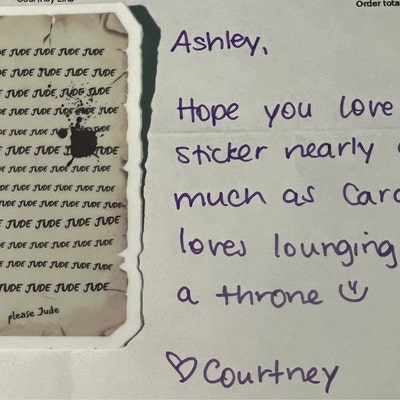 Order tota
JUDE JUDE JUDE JUDE
JUDE JUDE JUDE JUDE
JUDE JUDE JUDE JUDE
JUDE JUDE JUDE JUDE
JUDE JUDE JUDE
JUDE JUDE JUDE JUDE
JUDE JUDE JUDE JUDE
JUDE JUDE JUDE JUDE
JUDE JUDE JUDE JUDE JUDE
JUDE JUDE JUDE JUDE
JUDE JUDE JUDE JUDE
JUDE JUDE JUDE JUDE
JUDE JUDE JUDE JUDE
please Jude
Ashley,
Hope you love
sticker nearly
much as Card
loves lounging
a throne
Courtney